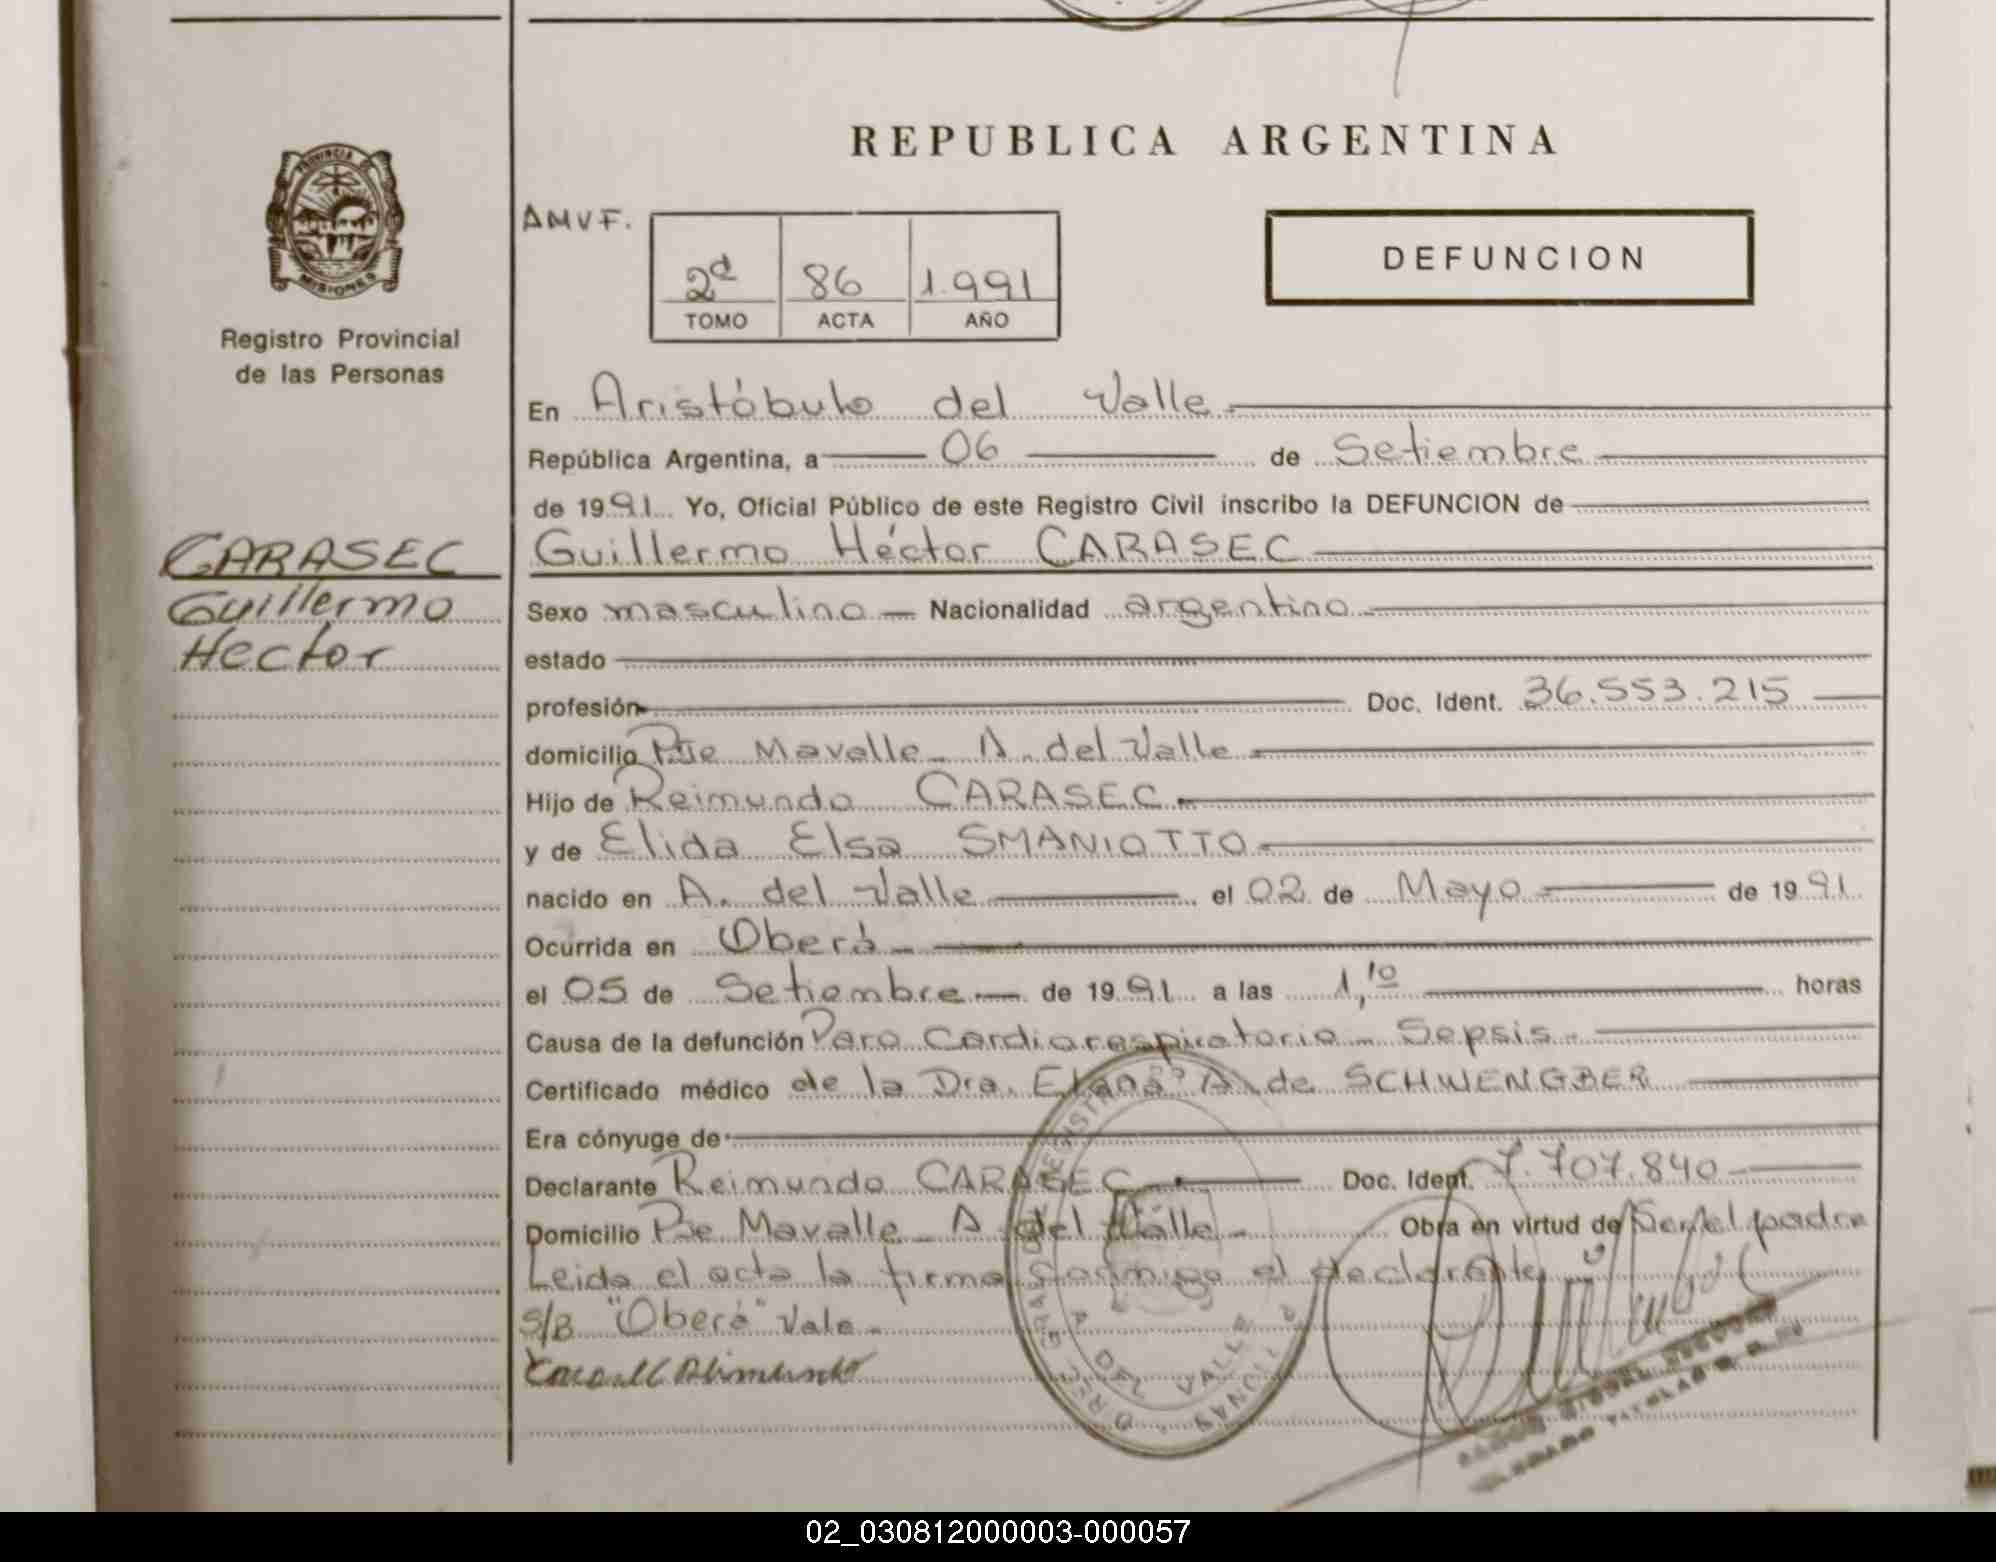 REPUBLICA ARGENTINA
PROVINCIA DE
MISIONES
Registro Provincial
de las Personas
AMVF.
2d 86 1.991
TOMO ACTA AÑO
DEFUNCION
En Aristóbulo del Valle
República Argentina, a 06 de Setiembre
de 1991. Yo, Oficial Público de este Registro Civil inscribo la DEFUNCION de
CARASEC
Guillermo
Hector
Guillermo Héctor CARASEC
Sexo masculino Nacionalidad argentino
estado
profesión Doc. Ident. 36.553.215
domicilio Pje Mavalle - A. del Valle
Hijo de Reimundo CARASEC
y de Elida Elsa SMANIOTTO
nacido en A. del Valle el 02 de Mayo de 1991.
Ocurrida en Oberá
el 05 de Setiembre de 1991 a las 1,10 horas
Causa de la defunción Paro Cardiorespiratorio - Sepsis
Certificado médico de la Dra. A. de SCHWENGBER
Era cónyuge de
Declarante Reimundo CARASEC Doc. Ident. 7.707.840
Domicilio Pje Mavalle - A. del Valle - Obra en virtud de Ser el padre
Leida el acta la firma conmigo el declarante
S/B "Oberá" Vale
DEL VALLE
02_030812000003-000057